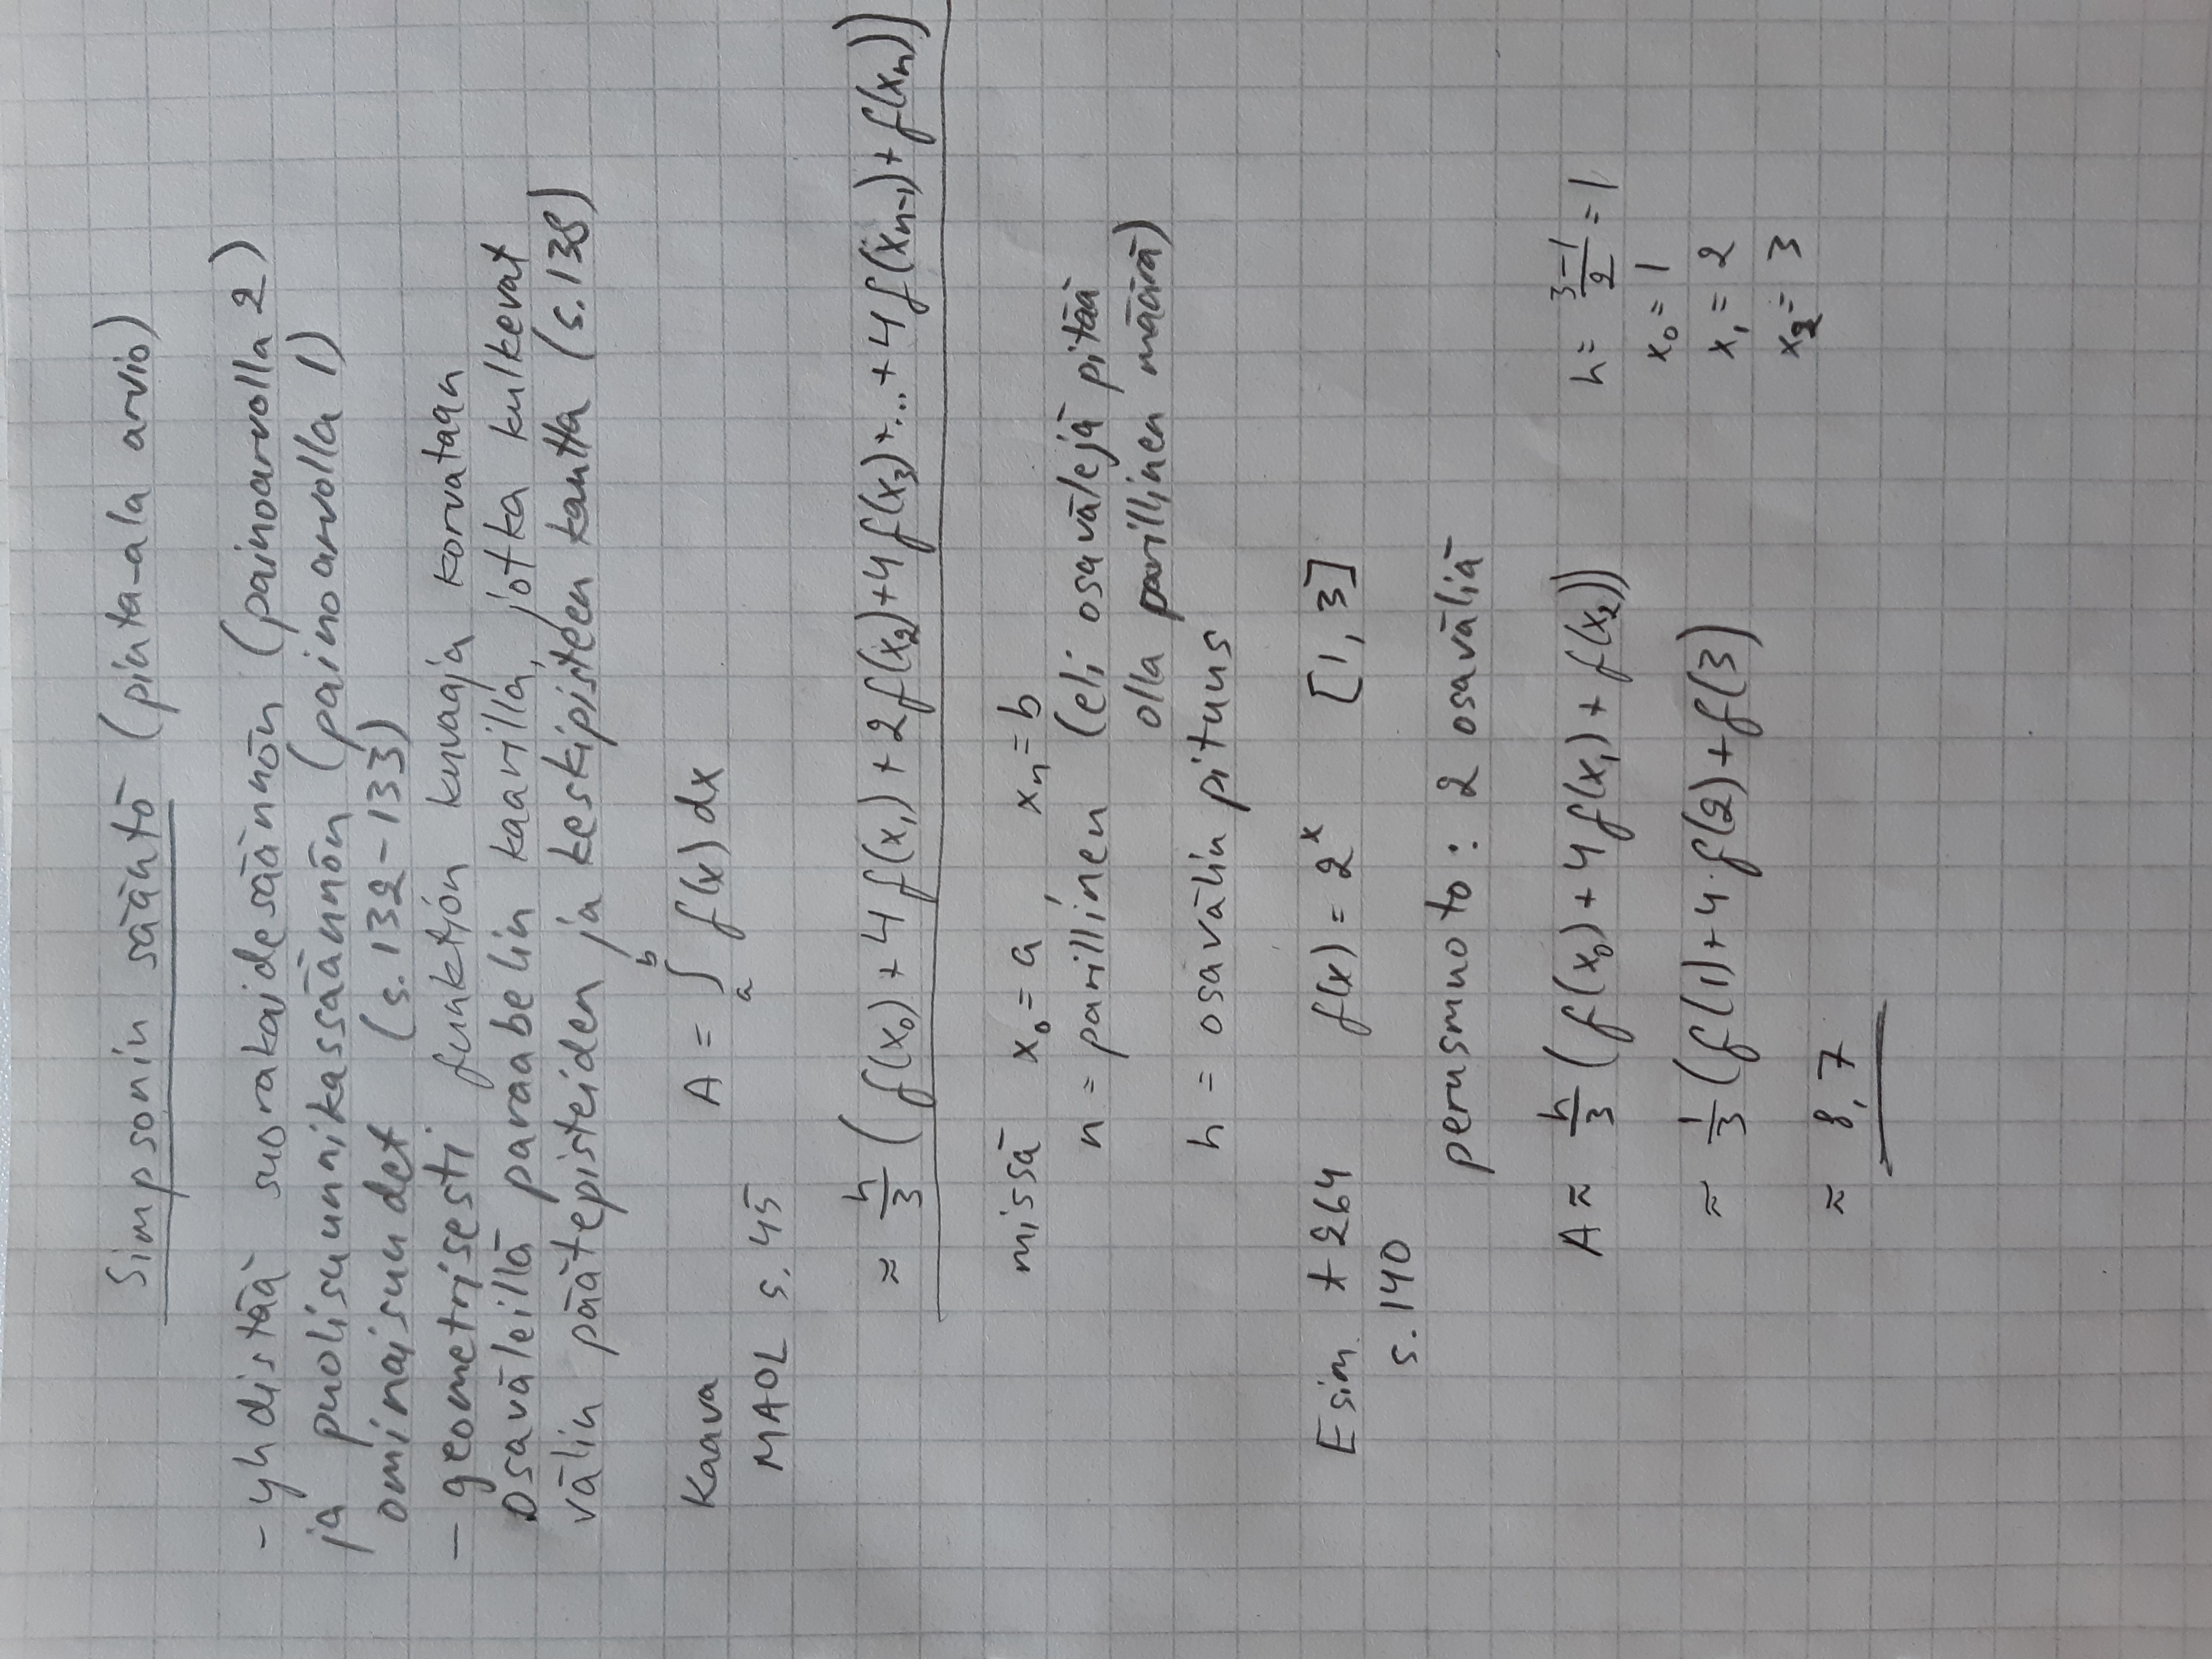 Simpsonin sääntö (pinta-ala arvio)
- yhdistää suorakaidesäännön (painoarvolla 2)
ja puolisuunnikassäännön (painoarvolla 1)
ominaisuudet (s. 132-133)
- geometrisesti funktion kuvaaja korvataan
osaväleillä paraabelin kaarilla, jotka kulkevat
välin päätepisteiden ja keskipisteen kautta (s. 138)
Kaava A = ∫ₐᵇ f(x) dx
MAOL s. 45
≈ h/3 (f(x₀) + 4 f(x₁) + 2 f(x₂) + 4 f(x₃) + ... + 4 f(xₙ₋₁) + f(xₙ))
missä x₀ = a xₙ = b
n = parillinen (eli osavälejä pitää
olla parillinen määrä)
h = osavälin pituus
Esim t 264 f(x) = 2ˣ [1, 3]
s. 140
perusmuoto: 2 osaväliä
A ≈ h/3 (f(x₀) + 4 f(x₁) + f(x₂)) h = (3-1)/2 = 1
x₀ = 1
≈ 1/3 (f(1) + 4 · f(2) + f(3) x₁ = 2
x₂ = 3
≈ 8,7